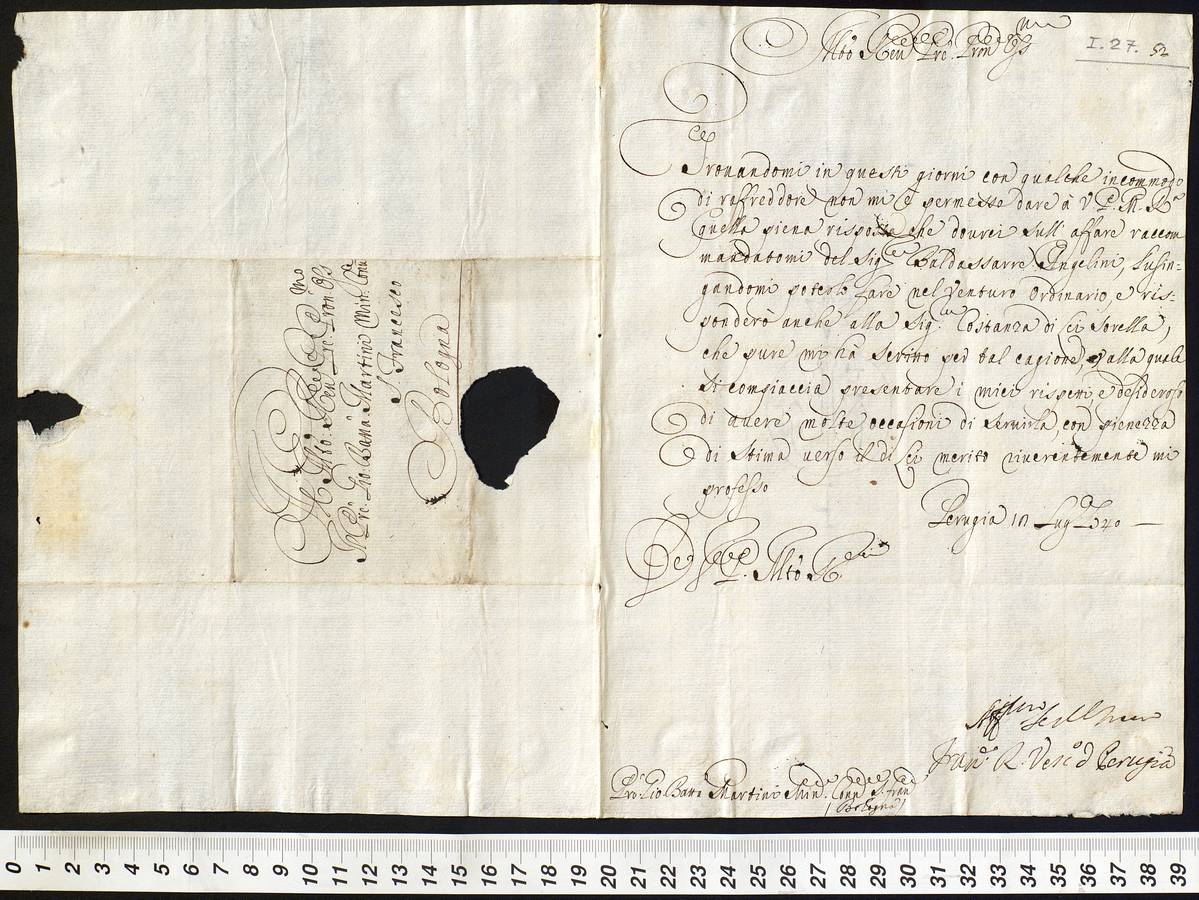 Al Mto Reu Pre Pron Oss mo
Il Pre Gio Batta Martini Min: Conu
S. Francesco
Bologna
I. 27. 52
Mto Reu Pre Pron Oss mo
Trouandomi in questi giorni con qualche incommodo
di rafreddore non mi è permesso dare à V. P. M. R.
quella piena risposta che dourei sull' affare raccom
mandatomi del Sig.e Baldassarre Angelini, lusin=
gandomi poterlo fare nel venturo Ordinario, e ris=
ponderò anche alla Sig.ra Costanza di lei Sorella,
che pure mi hà scritto per tal cagione, alla quale
si compiaccia presentare i miei rispetti, e desideroso
di auere molte occasioni di seruirla, con pienezza
di stima verso il di lei merito riuerentemente mi
professo
Perugia Lug.o
De V. P. Mto R.
Aff.mo
Fran.o R. Vesc.o d Perugia
Pre Gio Batta Martini Min. Conu S. Fran
Bologna
0 1 2 3 4 5 6 7 8 9 10 11 12 13 14 15 16 17 18 19 20 21 22 23 24 25 26 27 28 29 30 31 32 33 34 35 36 37 38 39